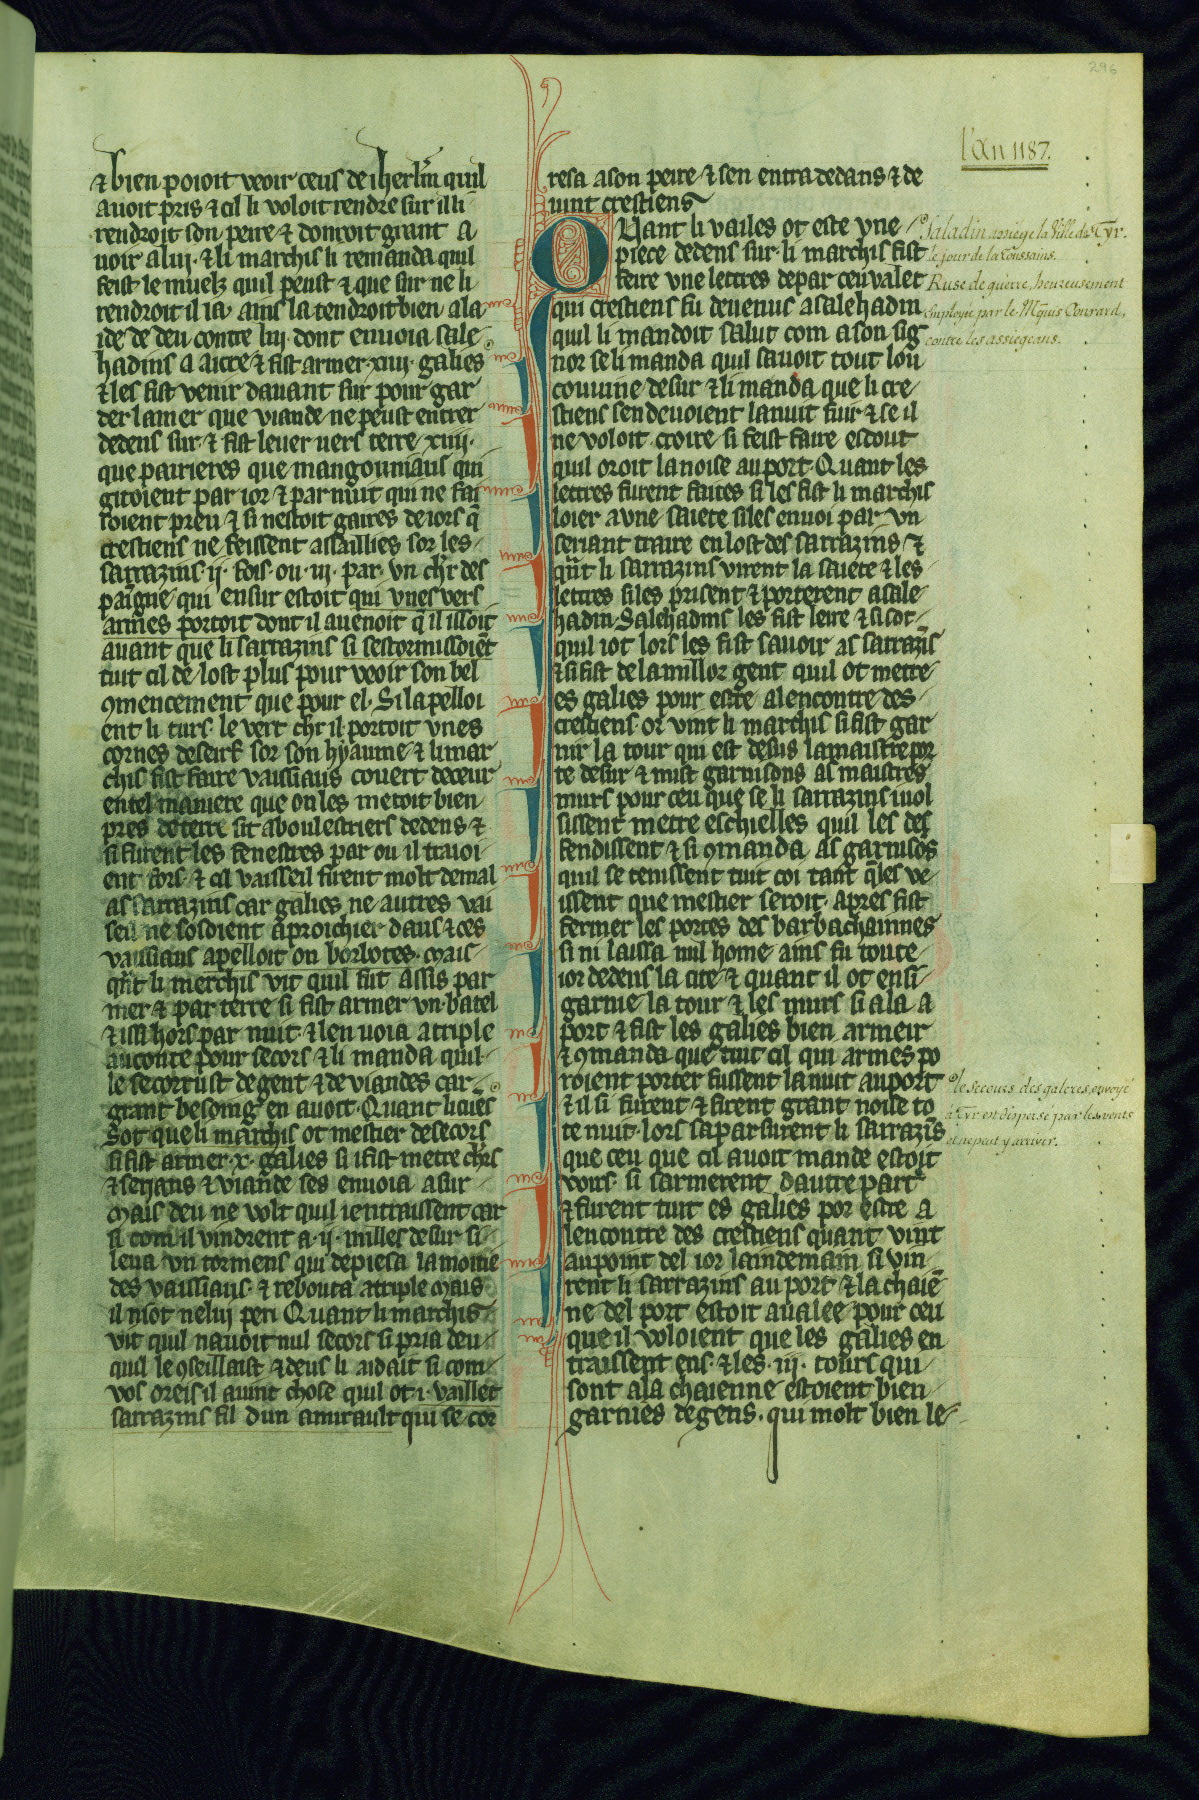 296
l'an 1187.
⁊ bien pooit veoir ceus de iherl'm quil
auoit pris ⁊ cil li voloit rendre sur il li
rendroit son peire ⁊ donroit grant a
uoir a lui · ⁊ li marchis li remanda quil
feist le muelz quil peust ⁊ que sur ne li
rendroit il ia · ains la tendroit bien a la
ide de deu contre lui · dont enuoia sale
hadins a aicre ⁊ fist armer · xiiii · galies
⁊ les fist venir dauant sur pour gar
der la mer que viande ne peust entrer
dedens sur · ⁊ fist leuer uers terre · xiiii ·
que pairieres que mangouniaus qui
gitoient par ior ⁊ par nuit qui ne fai
soient preu ⁊ si nestoit gaires de iors q̃
crestiens ne feissent assaillies sor les
sarrazins · ii · fois · ou · iii · par · vn ch'r des
paigne qui en sur estoit qui vnes vers
armes portoit dont il auenoit q̃ il issoit
auant que li sarrazins si sestormissoiẽt
tuit cil de lost plus pour veoir son bel
ꝯmencement que pour el · Si lapelloi
ent li turs · le vert ch'r il portoit vnes
cornes de seirf sor son hyaume · ⁊ li mar
chis fist faire vaissiaus couert de ceur
en tel maniere que on les metoit bien
pres de terre sit aboulestriers dedens ⁊
si furent les fenestres par ou il traioi
ent fors · ⁊ cil vaisseil firent molt de mal
as sarrazins car galies ne autres vai
seu ne sosoient aproichier daus ⁊ ces
vaissiaus apelloit on borbotes · mais
q̃nt li merchis vit quil fut assis par
mer ⁊ par terre si fist armer vn · batel
⁊ issi hors par nuit · ⁊ len uoia a triple
au conte pour secors ⁊ li manda quil
le secorrust de gent ⁊ de viandes car
grant besoing en auoit · Quant li cuẽs
sot que li marchis ot mestier de secors
si fist armer · x · galies si i fist metre ch'rs
⁊ serjans ⁊ viande ses enuoia a sur
mais deu ne volt quil i entraissent car
si com il vindrent a · ii · milles de sur si
leua vn tormens qui depiesa la moitie
des vaissiaus · ⁊ rebouta a triple mais
il niot nelui peri Quant li marchis
vit quil nauoit nul secors si pria deu
quil le ꝯseillaist ⁊ deus li aidait si com
vos oreis il auint chose quil ot · i · vaillet
sarrazins fil dun amirault qui se cor
resa a son peire ⁊ sen entra dedans ⁊ de
uint crestiens
Quant li vailes ot este vne
piece dedens sur · li marchis fist
feire vne lettres de par ceu valet
qui crestiens fu deuenus a salehadin
quil li mandoit salut com a son sig
nor se li manda quil sauoit tout lou
couuine de sur ⁊ li manda que li cre
stiens sen deuoient la nuit fuir ⁊ se il
ne voloit · croire si feist faire escout
quil oroit la noise au port Quant les
lettres furent faites si les fist li marchis
loier a vne saiete si les enuoi par vn
seriant traire en lost des sarrazins · ⁊
q̃nt li sarrazins virent la saiete ⁊ les
lettres si les prisent ⁊ porterent a sale
hadin · Salehadins les fist leire ⁊ si sot
quil iot lors les fist sauoir as sarrazĩs
⁊ si fist de la millor gent quil ot metre
es galies pour estre a lencontre des
crestiens · or vint li marchis si fist gar
nir la tour qui est desus la maistre por
te de sur ⁊ mist garnisons as maistres
murs pour ceu que se li sarrazins uol
sissent metre eschielles quil les des
fendissent ⁊ si ꝯmanda as garnisõs
quil se tenissent tuit coi tant q̃les ve
issent que mestier seroit · apres fist
fermer les portes des barbachainnes
si ni laissa nul home ains fu toute
ior dedens la cite ⁊ quant il ot ensi
garnie la tour ⁊ les murs si ala a
port ⁊ fist les galies bien armeir
⁊ ꝯmanda que tuit cil qui armes po
roient porter fussent la nuit au port
⁊ il si furent ⁊ firent grant noise to
te nuit · lors saparsurent li sarrazĩs
que ceu que cil auoit mande estoit
voirs · si sarmerent dautre part
⁊ furent tuit es galies por estre a
lencontre des crestiens quant vint
au point del ior lendemain si vin
rent li sarrazins au port · ⁊ la chaiẽ
ne del port estoit aualee pour ceu
que il voloient que les galies en
traissent ens · ⁊ les · iii · tours qui
sont a la chaienne estoient bien
garnies de gens · qui molt bien le
Saladin assiege la Ville de Tyr.
le jour de la toussains.
Ruse de guerre, heureusement
Employée par le M^quis Conrard,
contre les assiegeans.
le secours des galeres, envoyé
à Tyr est dispersé par les vents
et ne peut y arriver.